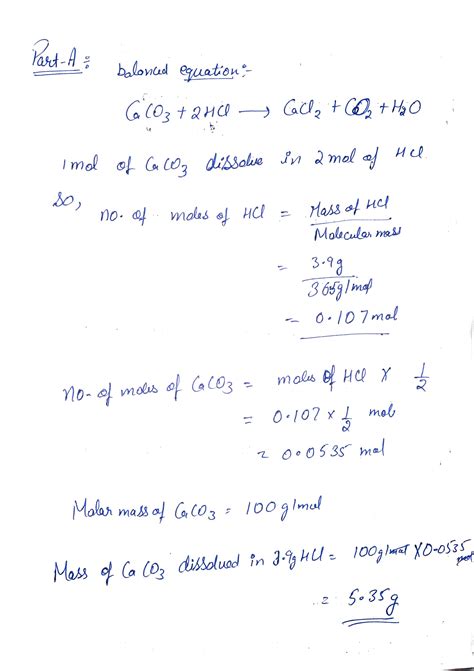 Part-A :
balanced equation:-
CaCO3 + 2HCl → CaCl2 + CO2 + H2O
1 mol of CaCO3 dissolve in 2 mol of HCl
SO,
no. of moles of HCl = Mass of HCl
Molecular mass
= 3.9g
365g/mol
= 0.107 mol
no- of moles of CaCO3 = moles of HCl × 1/2
= 0.107 × 1/2 mol
= 0.0535 mol
Molar mass of CaCO3 = 100 g/mol
Mass of CaCO3 dissolved in 3.9g HCl = 100g/mol × 0.0535
= 5.35g